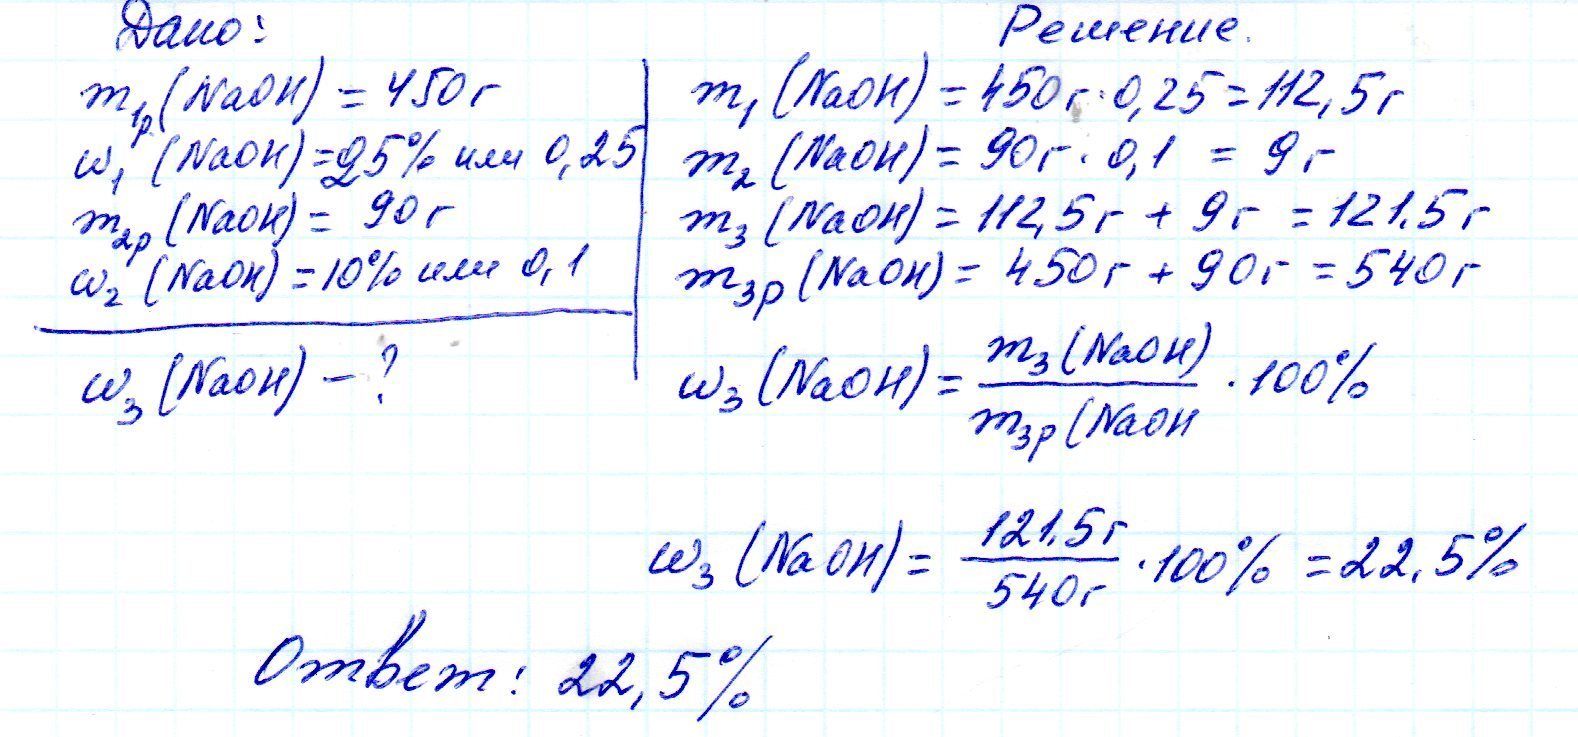 Дано:
m₁р(NaOH) = 450г
ω₁ (NaOH) = 25% или 0,25
m₂р (NaOH) = 90г
ω₂ (NaOH) = 10% или 0,1
ω₃ (NaOH) – ?
Решение.
m₁ (NaOH) = 450г · 0,25 = 112,5г
m₂ (NaOH) = 90г · 0,1 = 9г
m₃ (NaOH) = 112,5г + 9г = 121.5г
m₃р (NaOH) = 450г + 90г = 540г
ω₃ (NaOH) = m₃ (NaOH) / m₃р (NaOH · 100%
ω₃ (NaOH) = 121.5г / 540г · 100% = 22.5%
Ответ: 22,5%